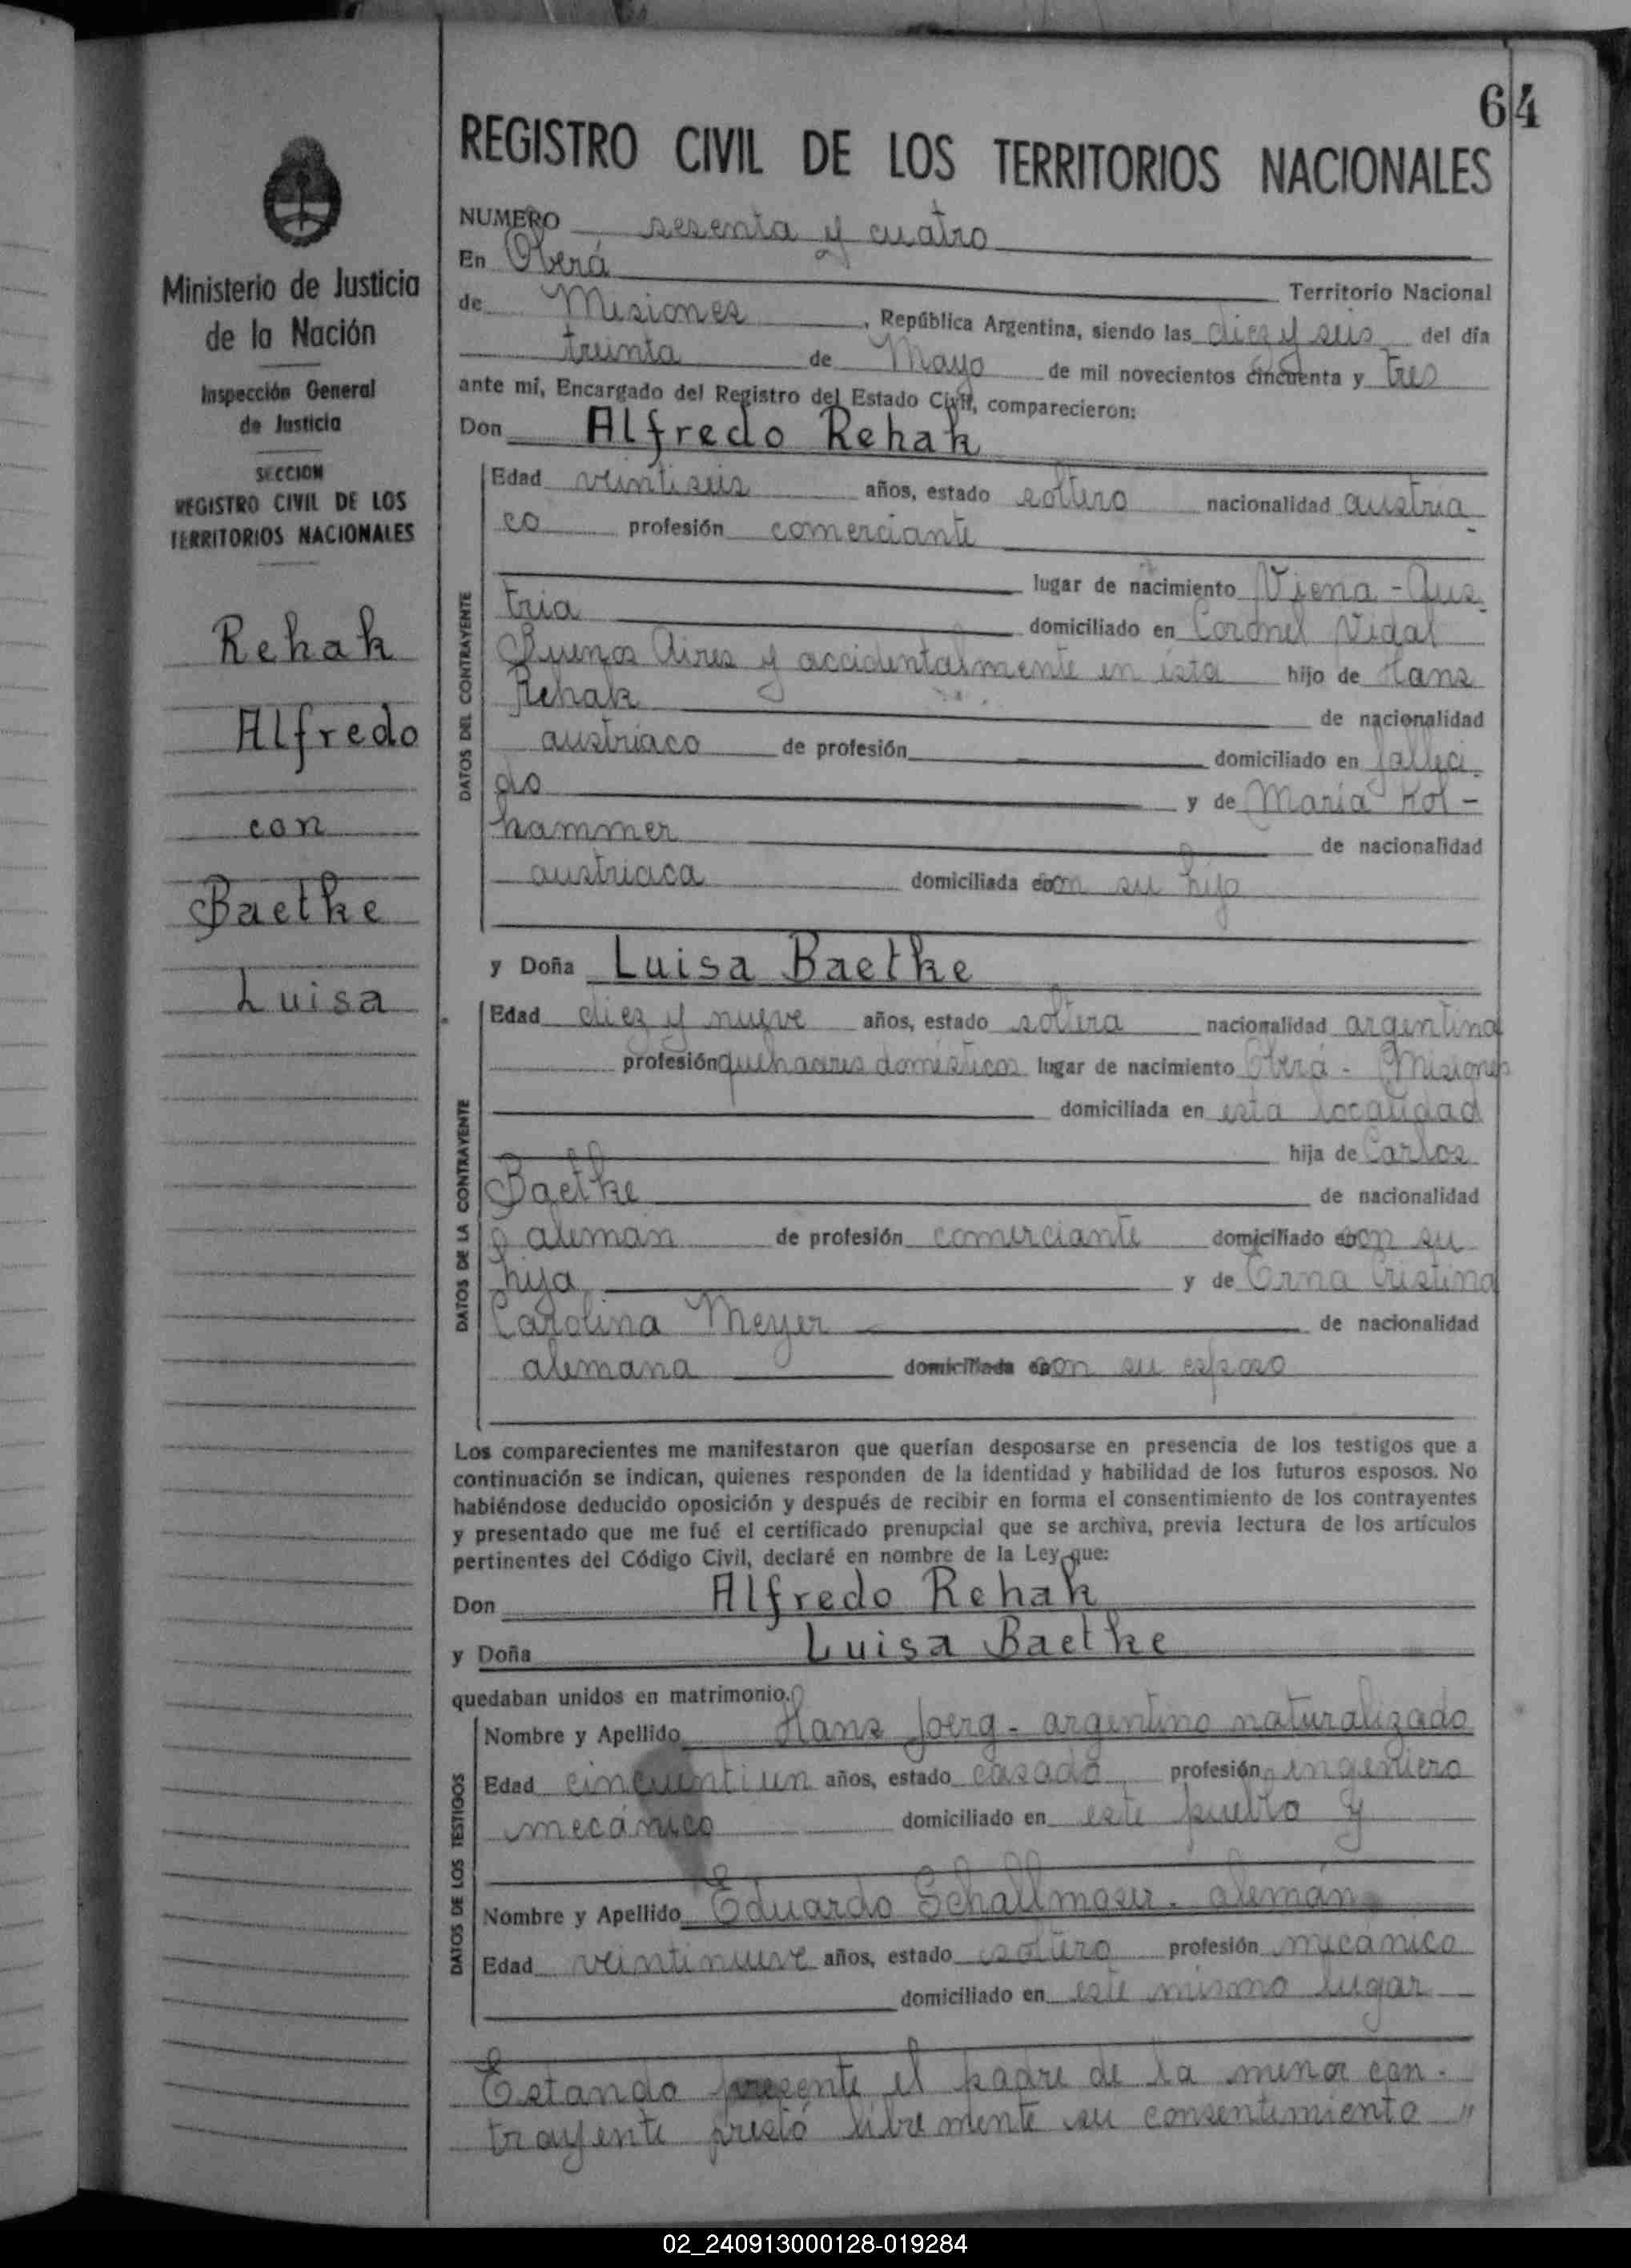 64
REGISTRO CIVIL DE LOS TERRITORIOS NACIONALES
Ministerio de Justicia
de la Nación
Inspección General
de Justicia
SECCION
REGISTRO CIVIL DE LOS
TERRITORIOS NACIONALES
Rehak
Alfredo
con
Baetke
Luisa
NUMERO sesenta y cuatro
En Oberá
Territorio Nacional
de Misiones, República Argentina, siendo las diez y seis del día
treinta de Mayo de mil novecientos cincuenta y tres
ante mí, Encargado del Registro del Estado Civil, comparecieron:
Don Alfredo Rehak
DATOS DEL CONTRAYENTE
Edad veintiseis años, estado soltero nacionalidad austria-
co profesión comerciante
lugar de nacimiento Viena - Aus-
tria domiciliado en Coronel Vidal
Buenos Aires y accidentalmente en ésta hijo de Hans
Rehak de nacionalidad
austriaco de profesión domiciliado en falleci-
do y de María Kol-
hammer de nacionalidad
austriaca domiciliada con su hijo
y Doña Luisa Baetke
DATOS DE LA CONTRAYENTE
Edad diez y nueve años, estado soltera nacionalidad argentina
profesión quehaceres domésticos lugar de nacimiento Oberá - Misiones
domiciliada en esta localidad
hija de Carlos
Baetke de nacionalidad
alemán de profesión comerciante domiciliado con su
hija y de Erna Cristina
Carolina Meyer de nacionalidad
alemana domiciliada con su esposo
Los comparecientes me manifestaron que querían desposarse en presencia de los testigos que a
continuación se indican, quienes responden de la identidad y habilidad de los futuros esposos. No
habiéndose deducido oposición y después de recibir en forma el consentimiento de los contrayentes
y presentado que me fué el certificado prenupcial que se archiva, previa lectura de los artículos
pertinentes del Código Civil, declaré en nombre de la Ley que:
Don Alfredo Rehak
y Doña Luisa Baetke
quedaban unidos en matrimonio.
DATOS DE LOS TESTIGOS
Nombre y Apellido Hans Joerg - argentino naturalizado
Edad cincuentiun años, estado casado profesión ingeniero
mecánico domiciliado en este pueblo y
Nombre y Apellido Eduardo Schallmoser - alemán
Edad veintinueve años, estado soltero profesión mecánico
domiciliado en este mismo lugar
Estando presente el padre de la menor con-
trayente prestó libremente su consentimiento "
02_240913000128-019284